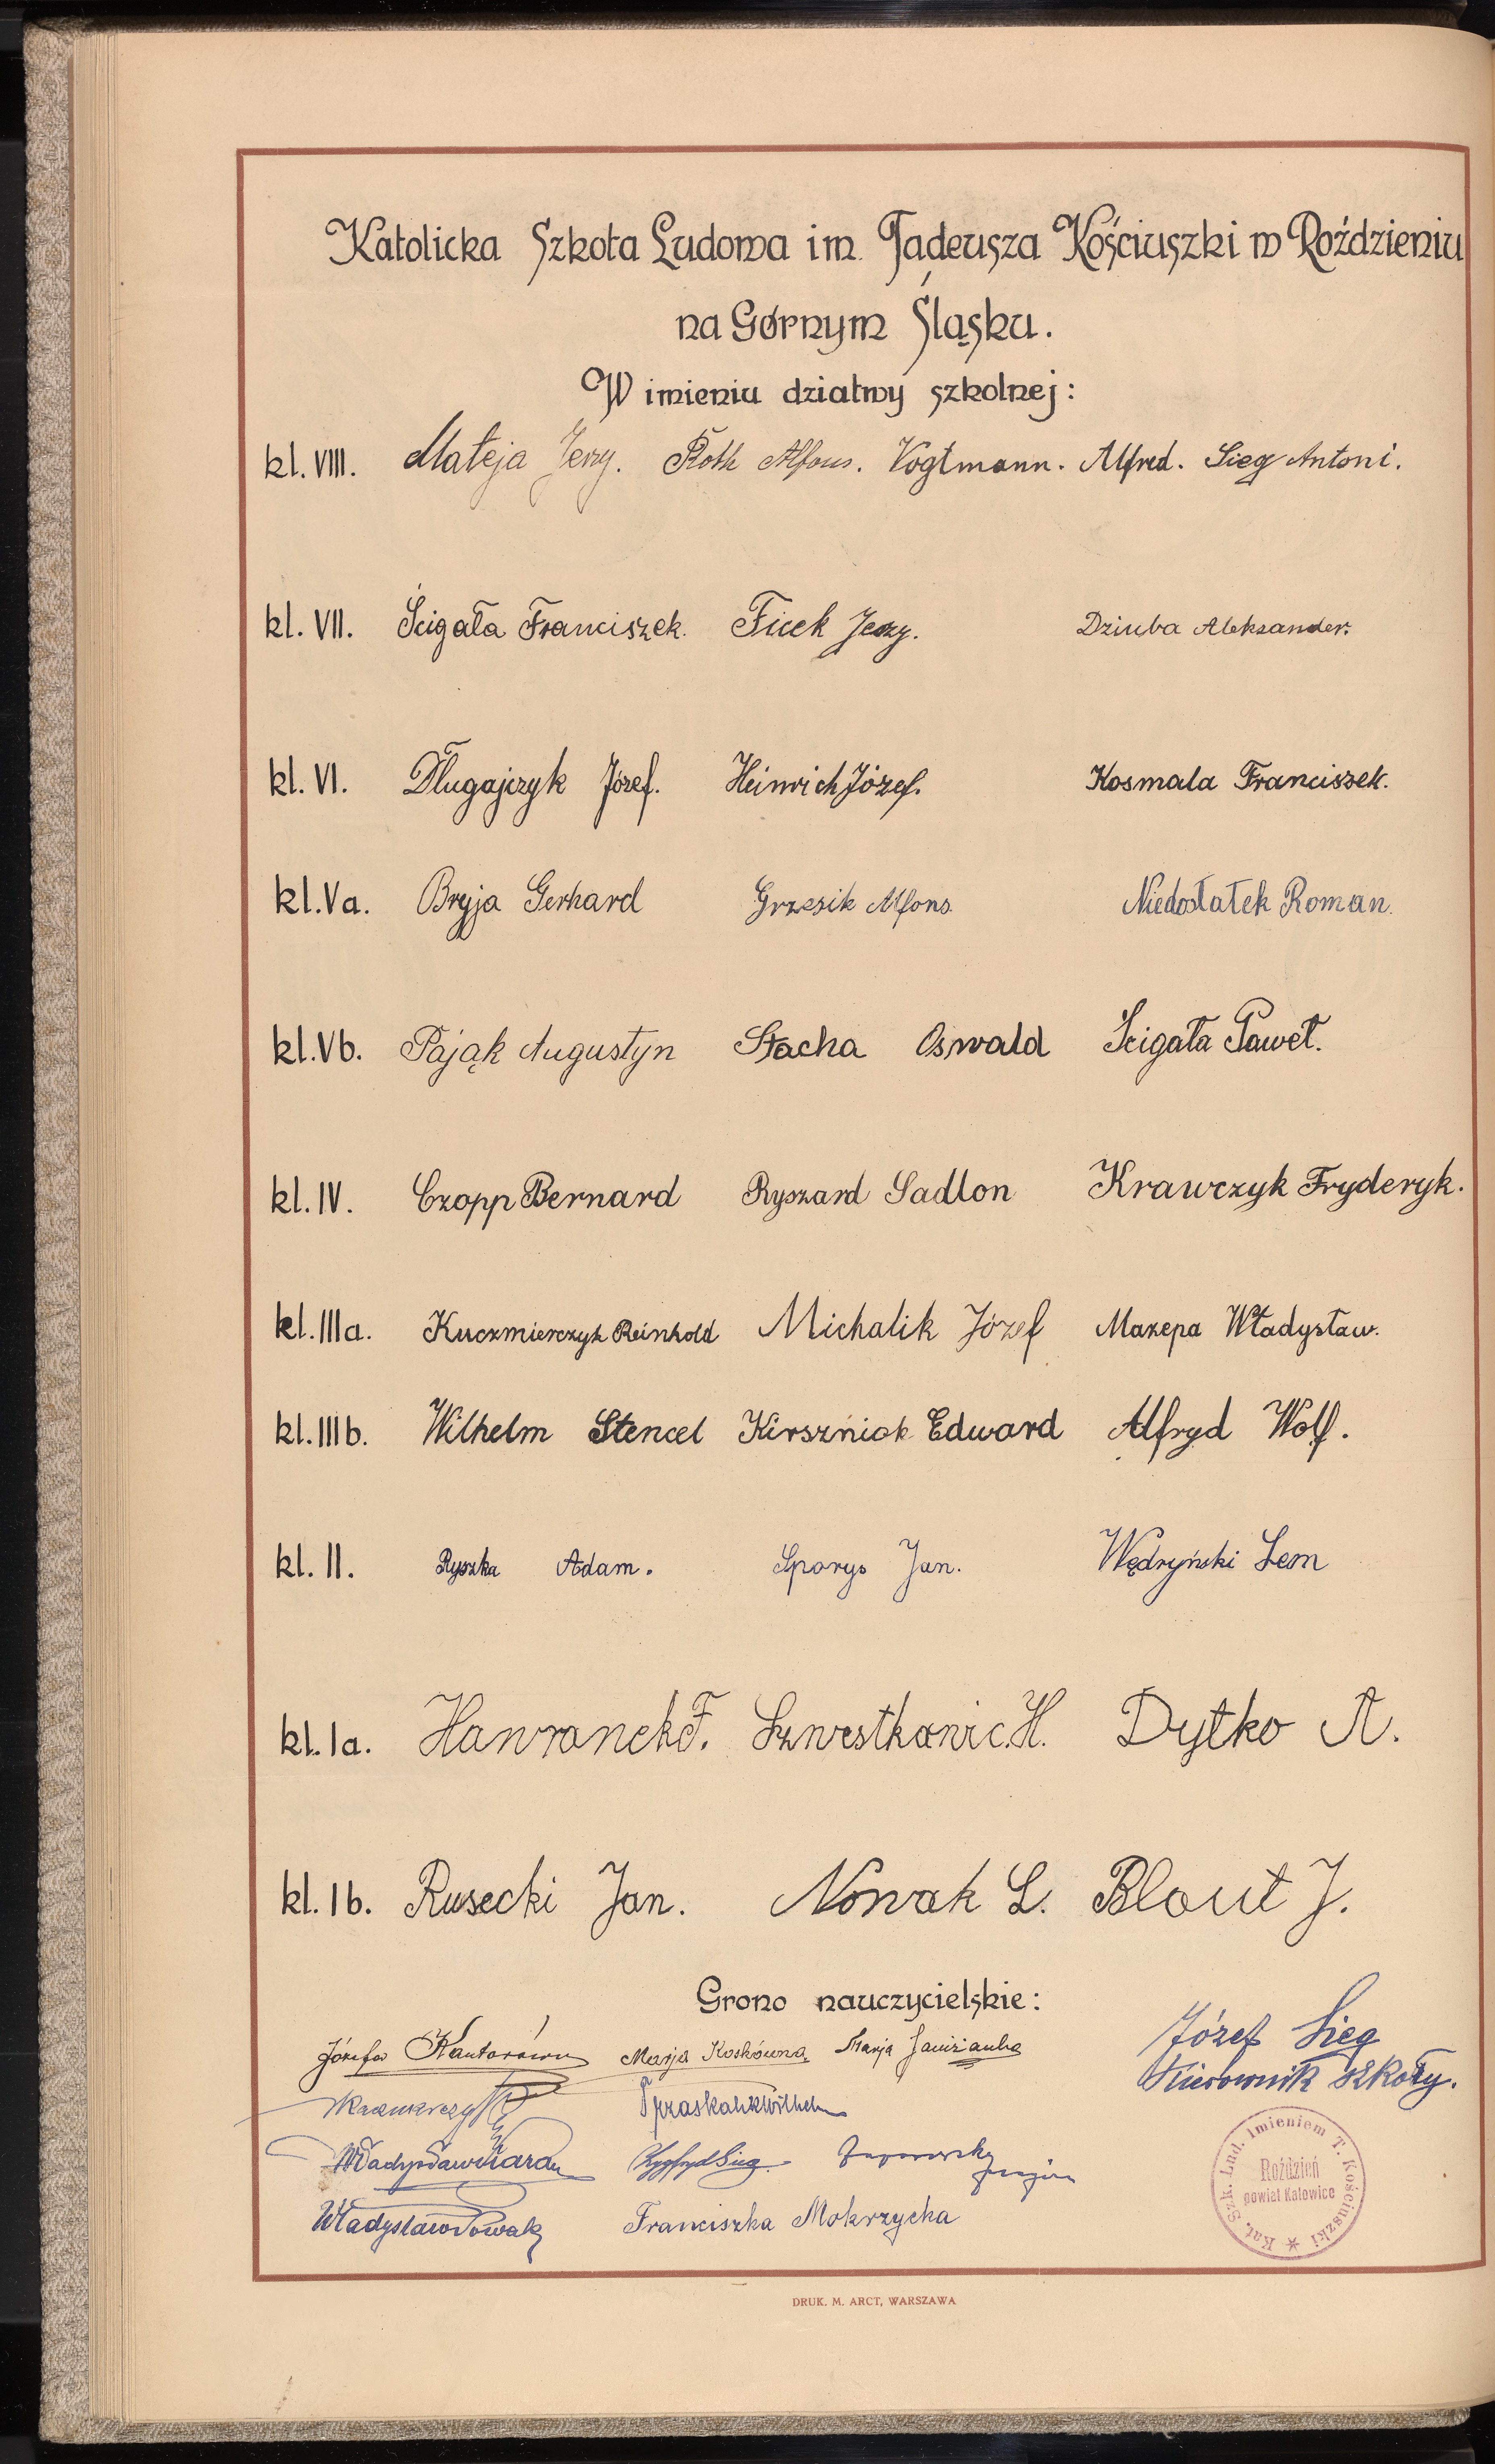 Katolicka Szkoła Ludowa im. Tadeusza Kościuszki w Roździeniu
na Górnym Śląsku.
W imieniu dziatwy szkolnej:
kl. VIII. Mateja Jerzy. Roth Alfons. Vogtmann. Alfred. Sieg Antoni.
kl. VII. Ścigała Franciszek. Ficek Jerzy. Dziuba Aleksander.
kl. VI. Długajczyk Józef. Heinrich Józef. Kosmala Franciszek.
kl. Va. Bryja Gerhard Grzesik Alfons. Niedostatek Roman.
kl. Vb. Pająk Augustyn Stacha Oswald Ścigała Paweł.
kl. IV. Czopp Bernard Ryszard Sadlon Krawczyk Fryderyk.
kl. IIIa. Kuczmierczyk Reinhold Michalik Józef Mazepa Władysław.
kl. IIIb. Wilhelm Stencel Kirszniok Edward Alfryd Wolf.
kl. II. Ryszka Adam. Sporys Jan. Wędryński Lem
kl. Ia. Hawranek F. H. Dytko A.
kl. Ib. Rusecki Jan. Nowak L. Blaut J.
Grono nauczycielskie:
Józefa Kantorówna Marja Koskówna Marja
Józef Sieg
Kierownik szkoły.
Wilhelm
Władysław Zygfryd Sieg
Władysław Nowak Franciszka Mokrzycka
Kat. Szk. Lud. Imieniem T. Kościuszki
Roździeń
powiat Katowice
DRUK. M. ARCT, WARSZAWA